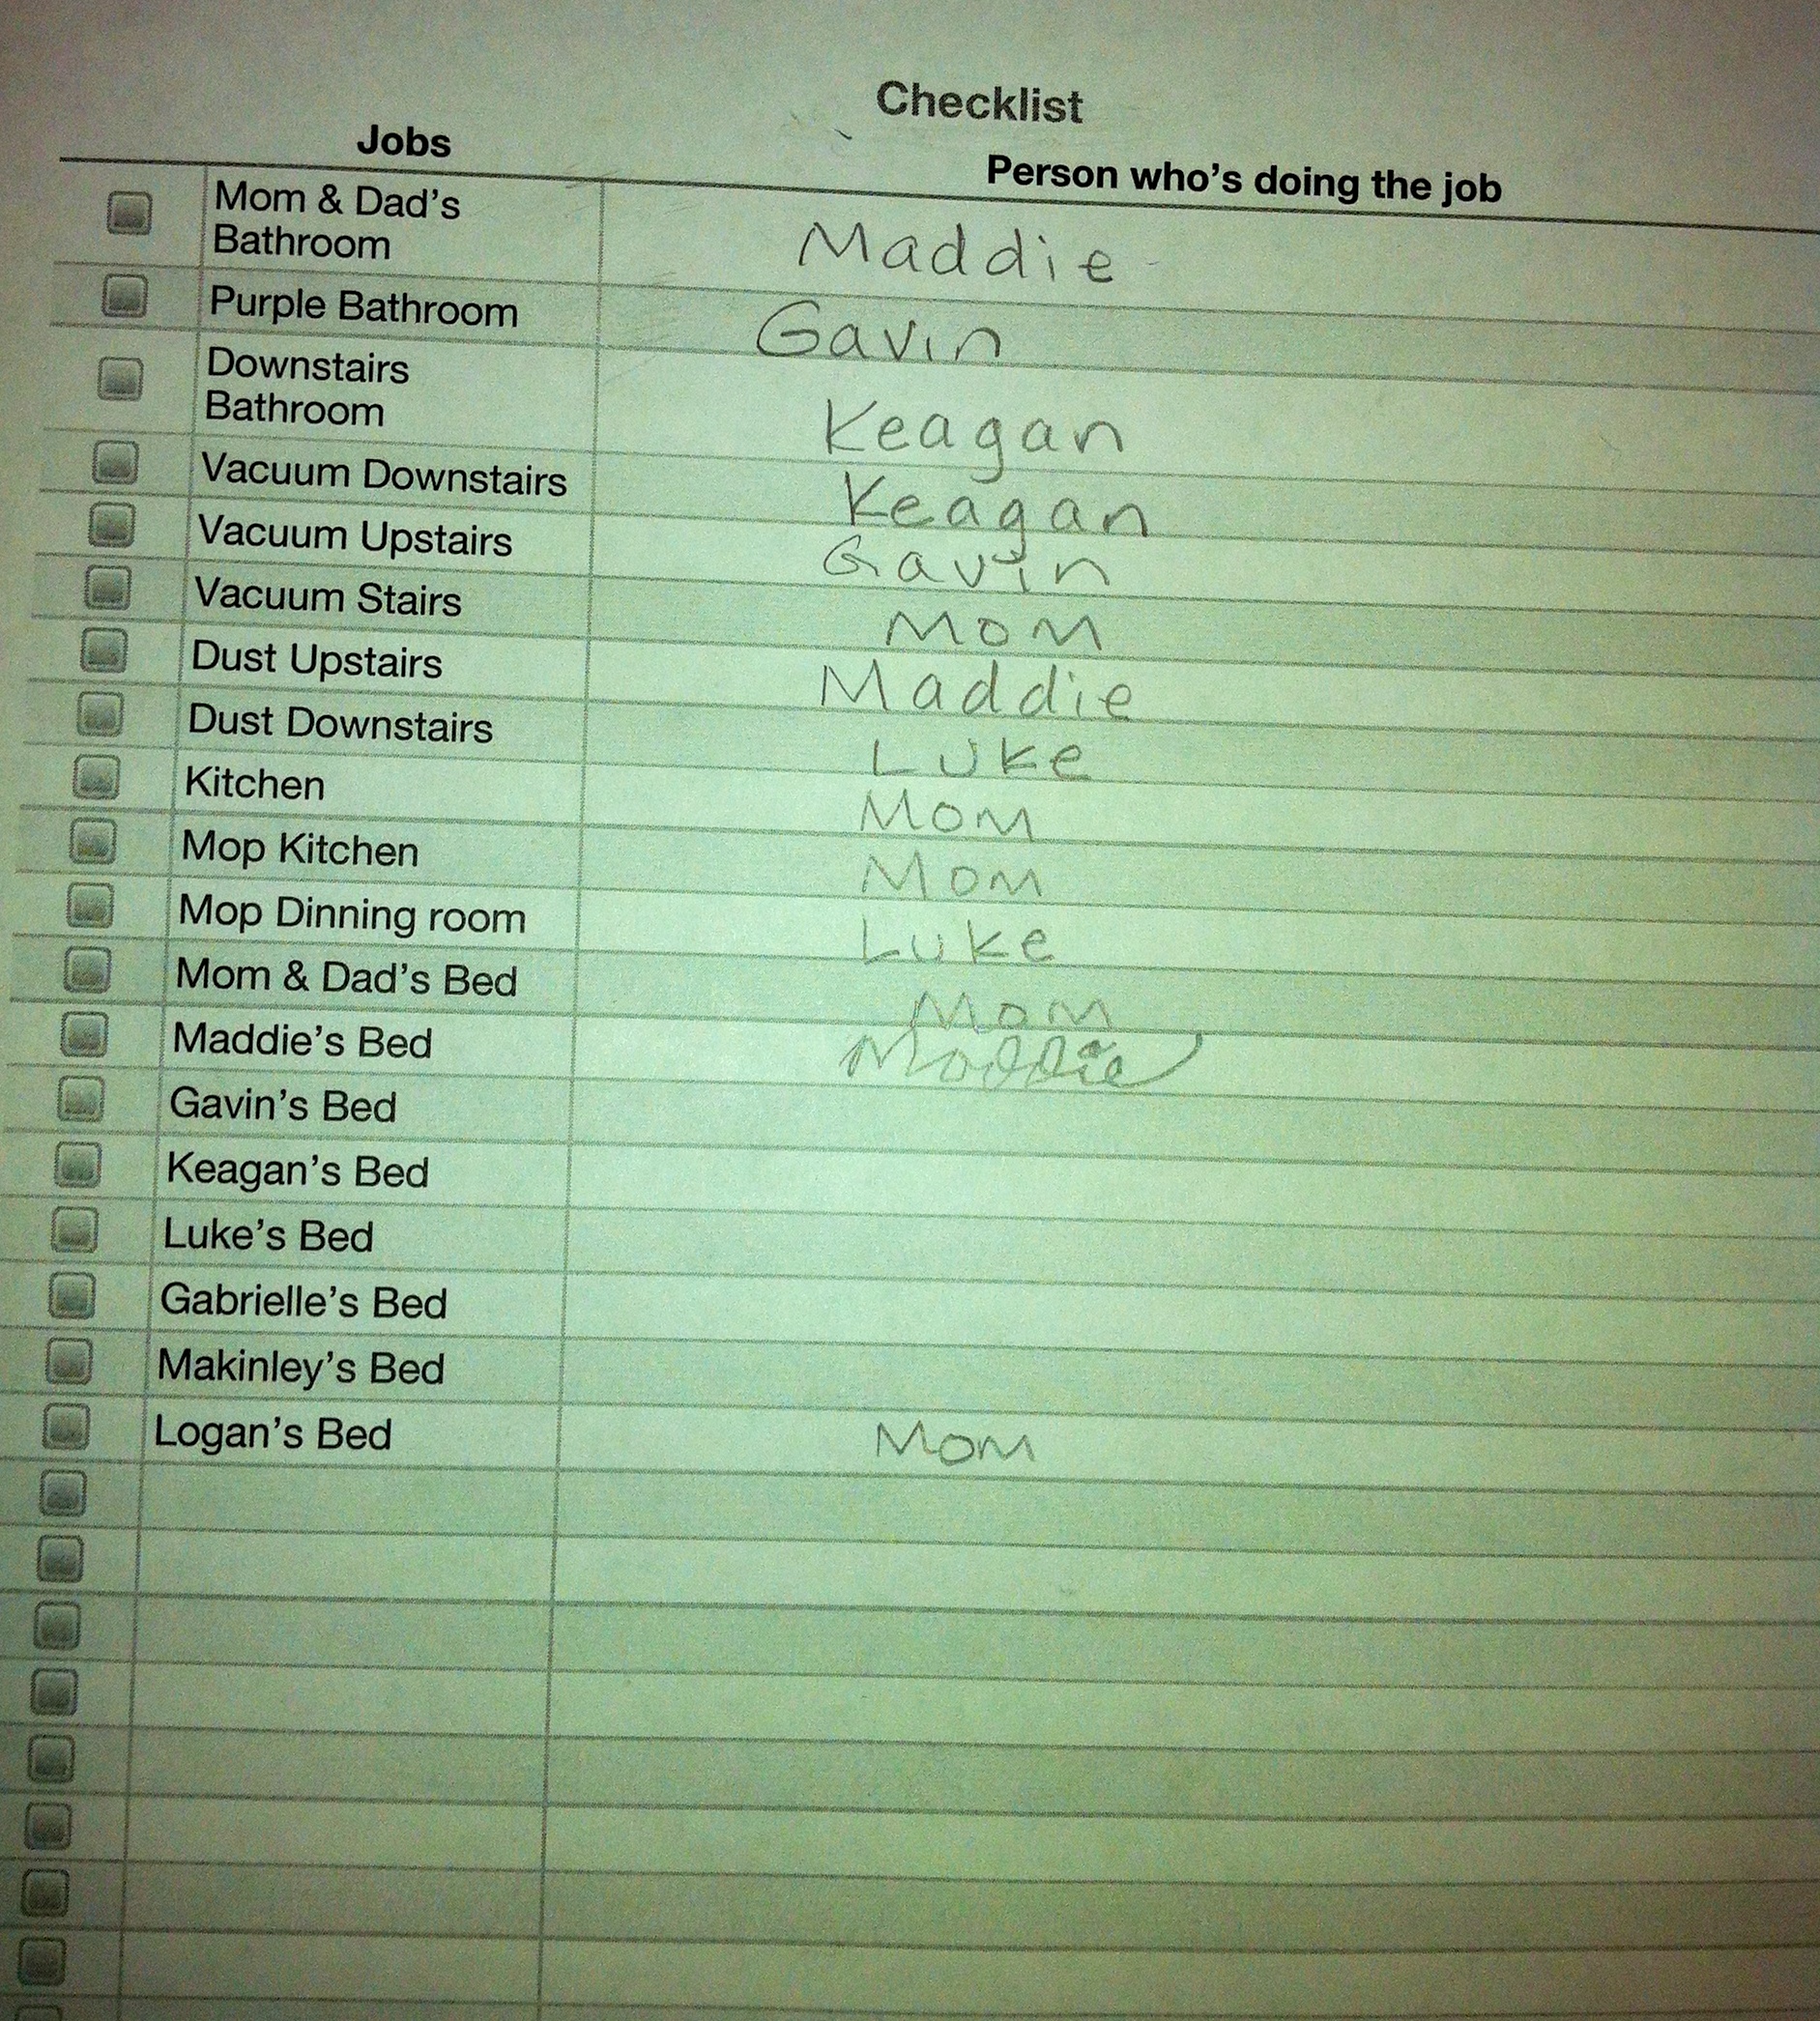 Checklist
Jobs Person who's doing the job
Mom & Dad's
Bathroom Maddie
Purple Bathroom Gavin
Downstairs
Bathroom Keagan
Vacuum Downstairs Keagan
Vacuum Upstairs Gavin
Vacuum Stairs Mom
Dust Upstairs Maddie
Dust Downstairs Luke
Kitchen Mom
Mop Kitchen Mom
Mop Dinning room Luke
Mom & Dad's Bed Mom
Maddie's Bed Maddie
Gavin's Bed
Keagan's Bed
Luke's Bed
Gabrielle's Bed
Makinley's Bed
Logan's Bed Mom